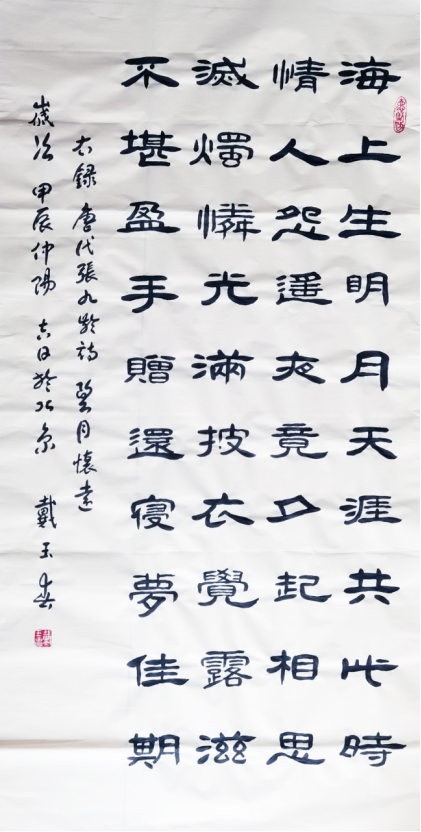 海上生明月天涯共此時
情人怨遙夜竟夕起相思
滅燭憐光滿披衣覺露滋
不堪盈手贈還寢夢佳期
右錄唐代張九齡詩望月懷遠
歲次甲辰仲陽吉日於北京 戴玉